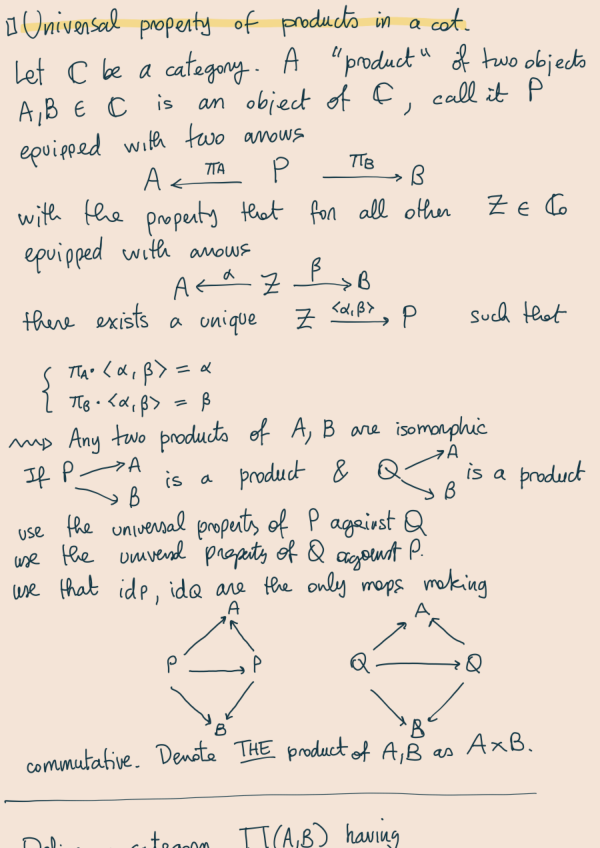 Universal property of products in a cat.
Let ℂ be a category. A "product" of two objects
A,B ∈ ℂ is an object of ℂ, call it P
equipped with two arrows
A ←πA— P —πB→ B
with the property that for all other Z ∈ ℂ₀
equipped with arrows
A ←α— Z —β→ B
there exists a unique Z —<α,β>→ P such that
{ πA · <α,β> = α
πB · <α,β> = β
⇝ Any two products of A, B are isomorphic
If P → A → B is a product & Q → A → B is a product
use the universal property of P against Q
use the universal property of Q against P.
use that idP, idQ are the only maps making
A A
P → P Q → Q
B B
commutative. Denote THE product of A,B as A×B.
category ∏(A,B) having